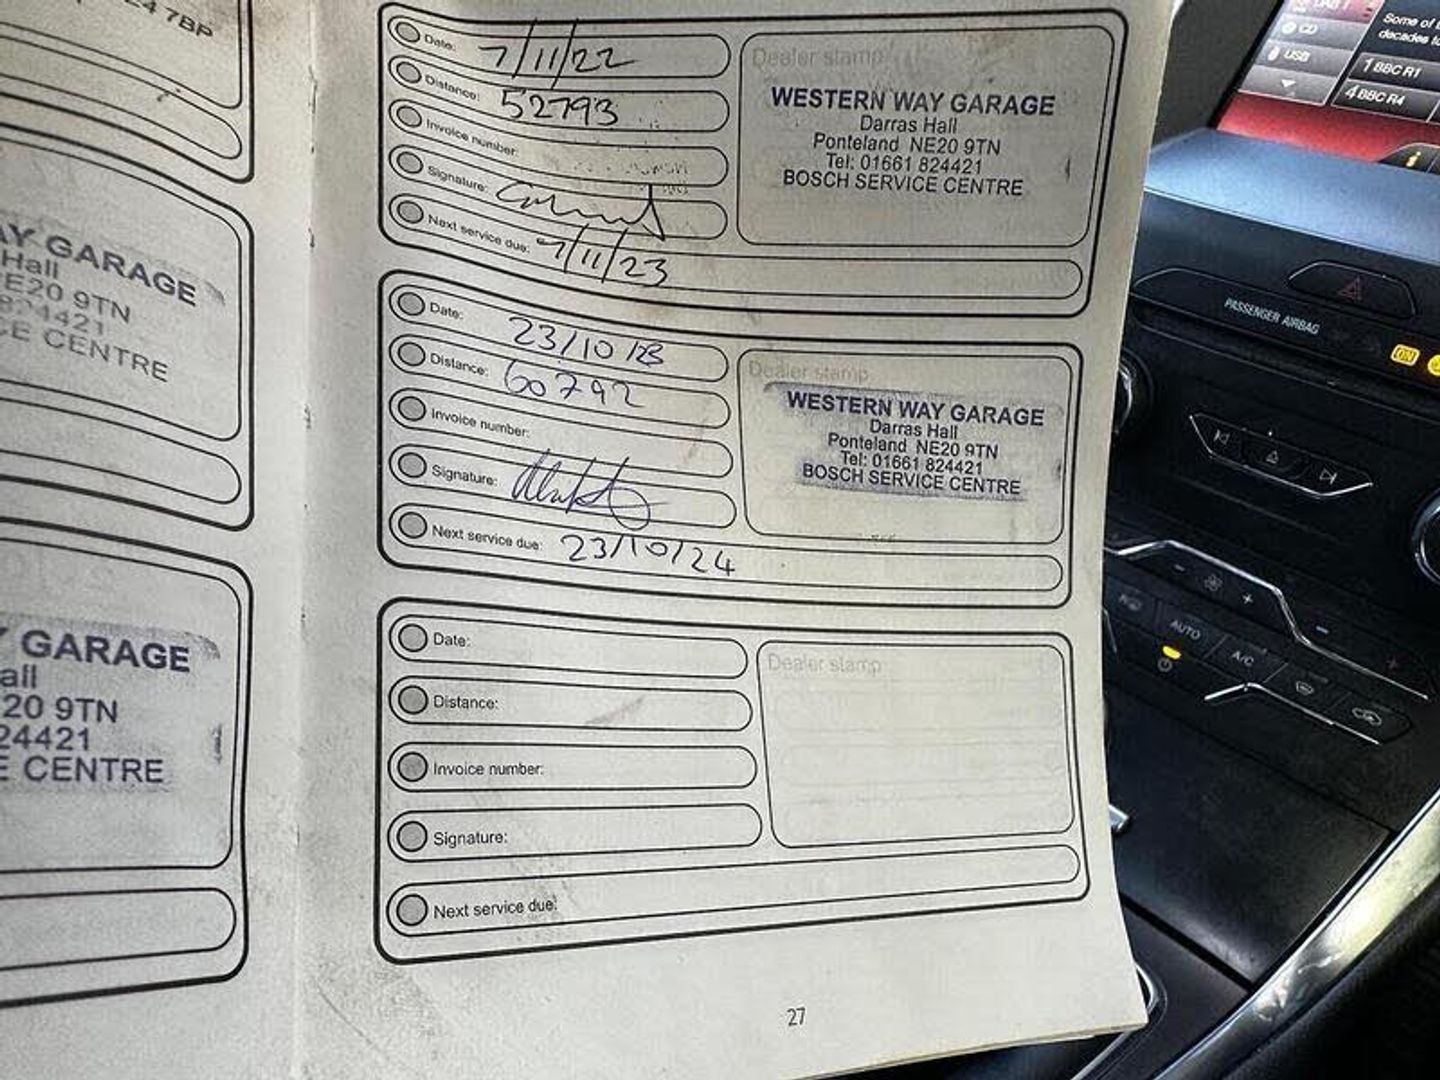 E4 7BP
AY GARAGE
Hall
E20 9TN
CE CENTRE
Y GARAGE
all
20 9TN
24421
E CENTRE
Date: 7/11/22
Distance: 52793
Invoice number:
Signature:
Next service due: 7/11/23
Dealer stamp
WESTERN WAY GARAGE
Darras Hall
Ponteland NE20 9TN
Tel: 01661 824421
BOSCH SERVICE CENTRE
Date: 23/10/23
Distance: 60792
Invoice number:
Signature:
Next service due: 23/10/24
Dealer stamp
WESTERN WAY GARAGE
Darras Hall
Ponteland NE20 9TN
Tel: 01661 824421
BOSCH SERVICE CENTRE
Date:
Distance:
Invoice number:
Signature:
Next service due:
Dealer stamp
27
DAB 1
CD
USB
Some of
decades to
1 BBC R1
4 BBC R4
i
PASSENGER AIRBAG
ON
AUTO
A/C